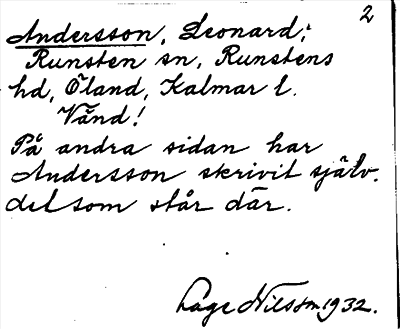 2
Andersson, Leonard;
Runsten sn, Runstens
hd, Öland, Kalmar l.
Vänd!
På andra sidan har
Andersson skrivit själv.
det som står där.
Lage Nilsson 1932.